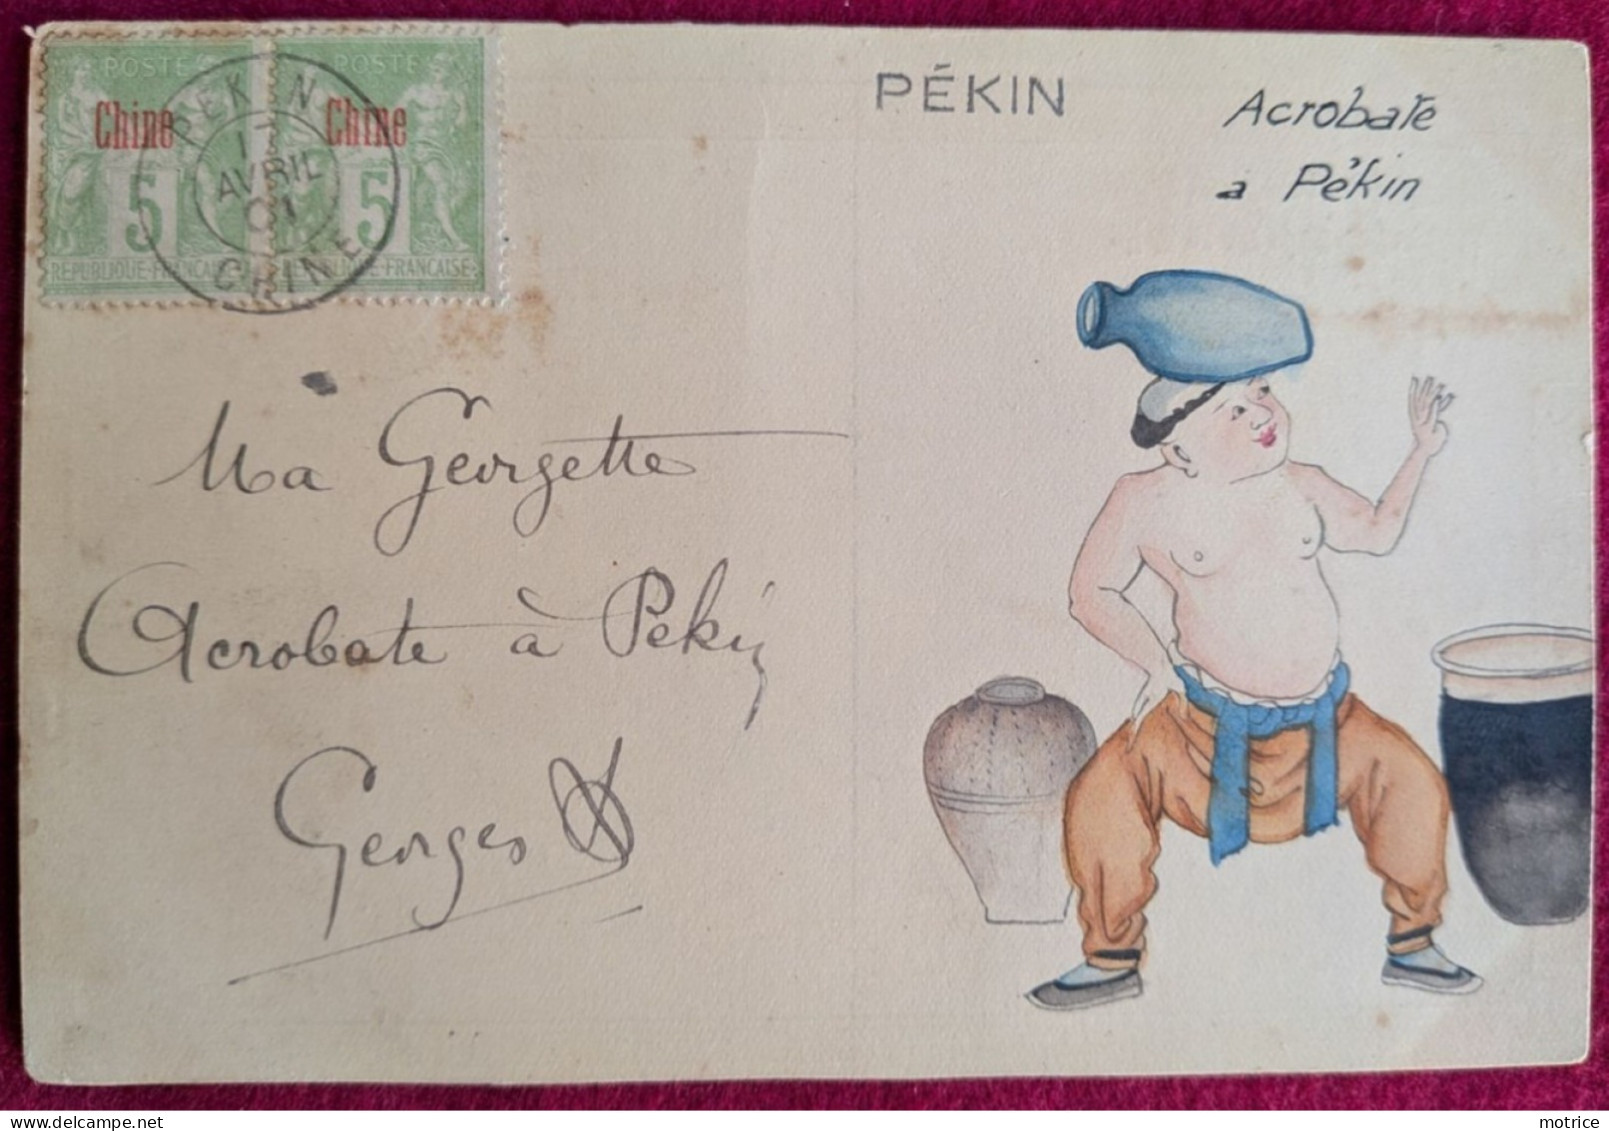 POSTE POSTE
Chine Chine
5 5
REPUBLIQUE-FRANCAISE REPUBLIQUE-FRANCAISE
PEKIN
17
AVRIL
01
CHINE
PÉKIN
Acrobate
a Pékin
Ma Georgette
Acrobate à Pékin
Georges
motrice